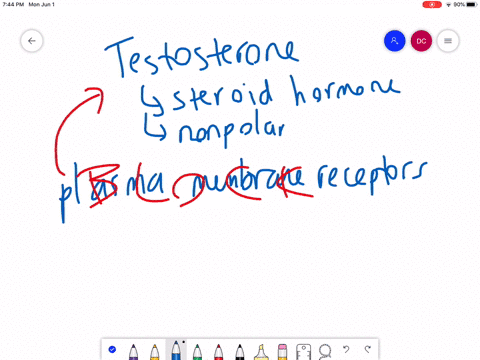 7:44 PM Mon Jun 1 90%
DC
Testosterone
↳ steroid hormone
↳ nonpolar
plasma membrane receptors
BLOCK